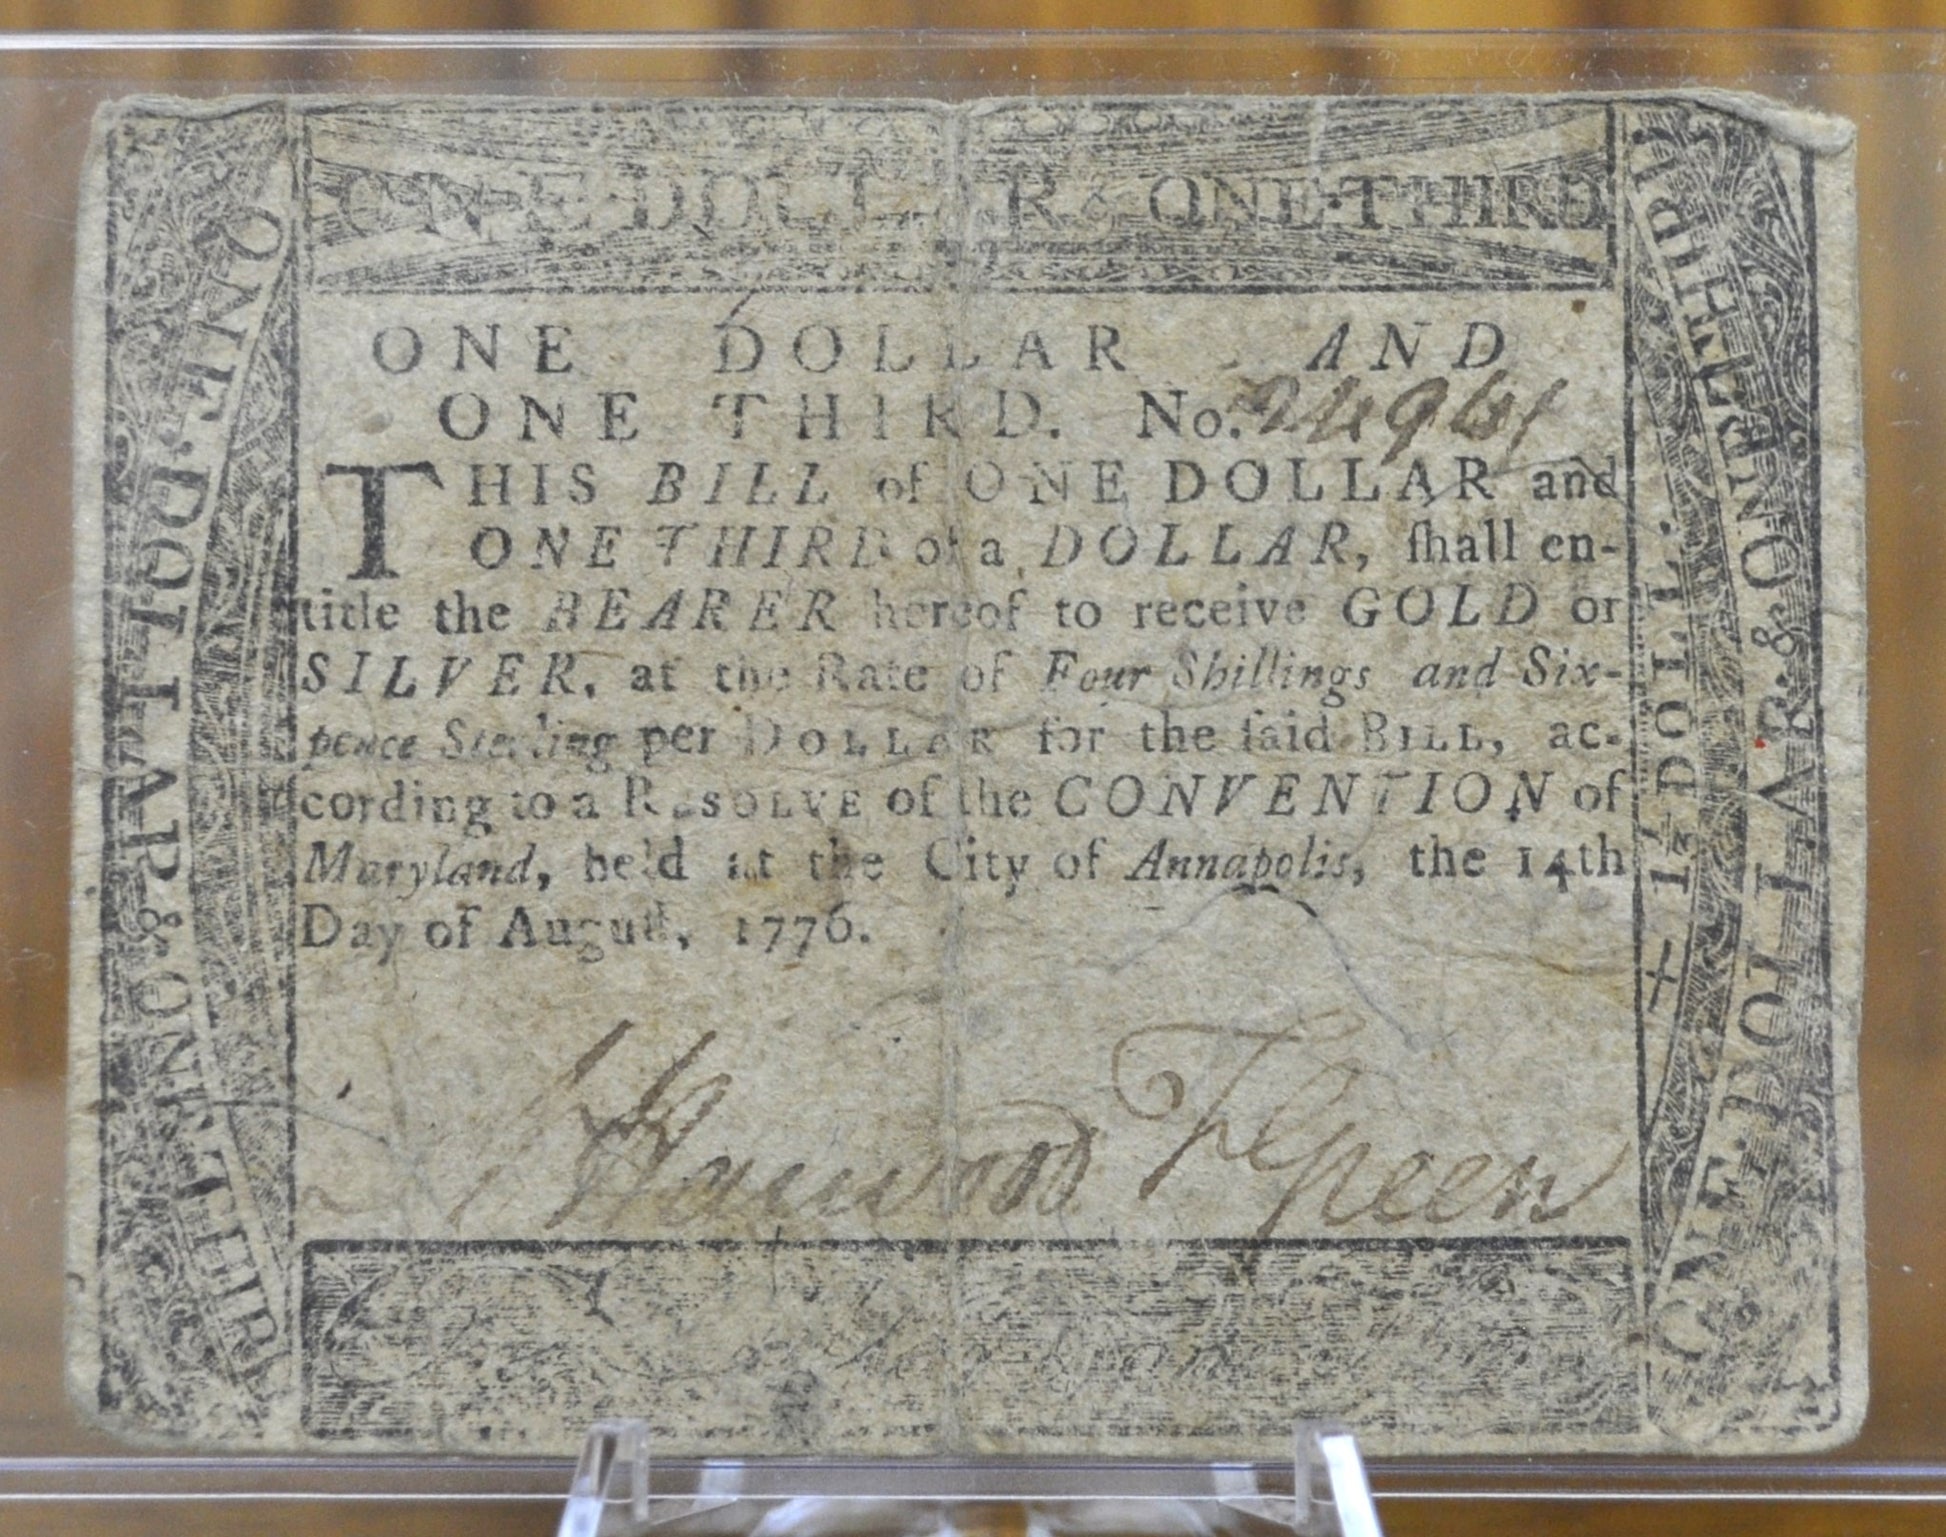 ONE DOLLAR & ONE THIRD
ONE DOLLAR AND
ONE THIRD. No. 24961
THIS BILL of ONE DOLLAR and
ONE THIRD of a DOLLAR, ſhall en-
title the BEARER hereof to receive GOLD or
SILVER, at the Rate of Four Shillings and Six-
pence Sterling per DOLLAR for the ſaid BILL, ac-
cording to a RESOLVE of the CONVENTION of
Maryland, held at the City of Annapolis, the 14th
Day of Auguſt, 1776.
Harwood T Green
ONE·DOLLAR·&·ONE·THIRD
1⅓ DOLL.
ONE·DOLLAR·&·ONE·THIRD